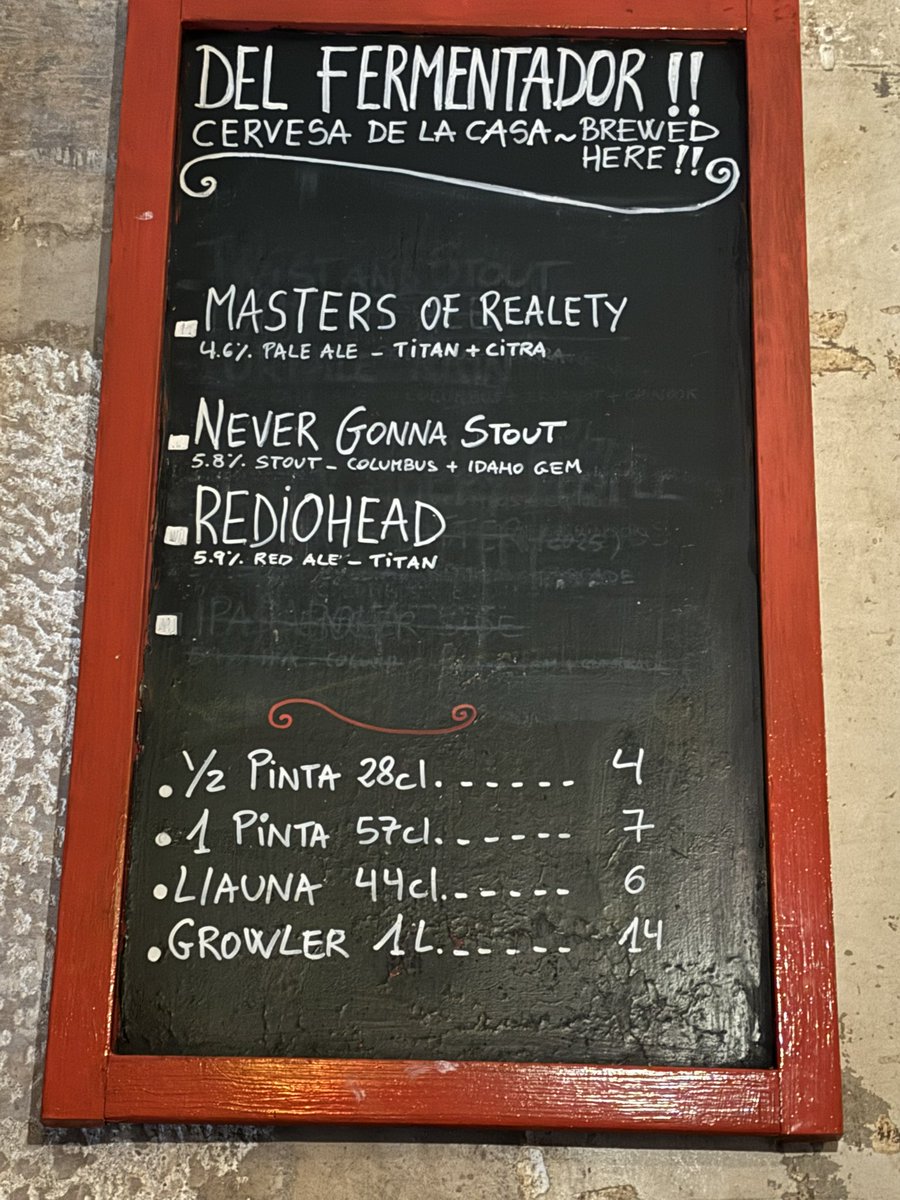 DEL FERMENTADOR !!
CERVESA DE LA CASA ~ BREWED
HERE !!
MASTERS OF REALETY
4.6% PALE ALE - TITAN + CITRA
NEVER GONNA STOUT
5.8% STOUT - COLUMBUS + IDAHO GEM
REDIOHEAD
5.9% RED ALE - TITAN
1/2 PINTA 28cl. ------ 4
1 PINTA 57cl. ------ 7
L/AUNA 44cl. ------ 6
GROWLER 1L. ------ 14